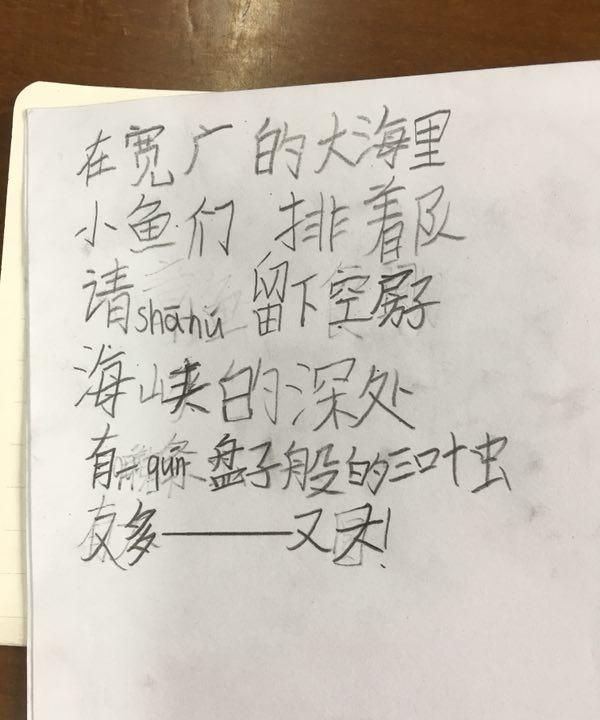 在宽广的大海里
小鱼们 排着队
请shānú 留下空房子
海峡的深处
有一qún 盘子般的三叶虫
友多———又灭!